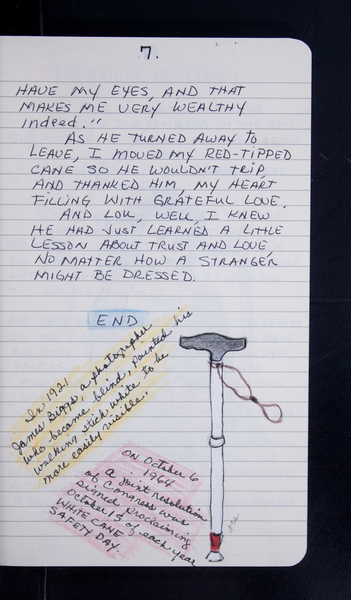 7.
HAVE MY EYES, AND THAT
MAKES ME VERY WEALTHY
indeed."
AS HE TURNED AWAY to
LEAVE, I MOVED MY RED-TIPPED
CANE SO HE WOULDN'T TRIP
AND THANKED HIM, MY HEART
FILLING WITH GRATEFUL LOVE.
AND LOU, WELL, I KNEW
HE HAD JUST LEARNED A LITTLE
LESSON ABOUT TRUST AND LOVE,
NO MATTER HOW A STRANGER
MIGHT BE DRESSED.
END
In 1921
James Biggs, a photographer
who became blind, painted his
walking stick white to be
more easily visible.
ON OCTOBER 6
1964
a joint resolution
of Congress was
signed proclaiming
October 15 of each year
WHITE CANE
SAFETY DAY.